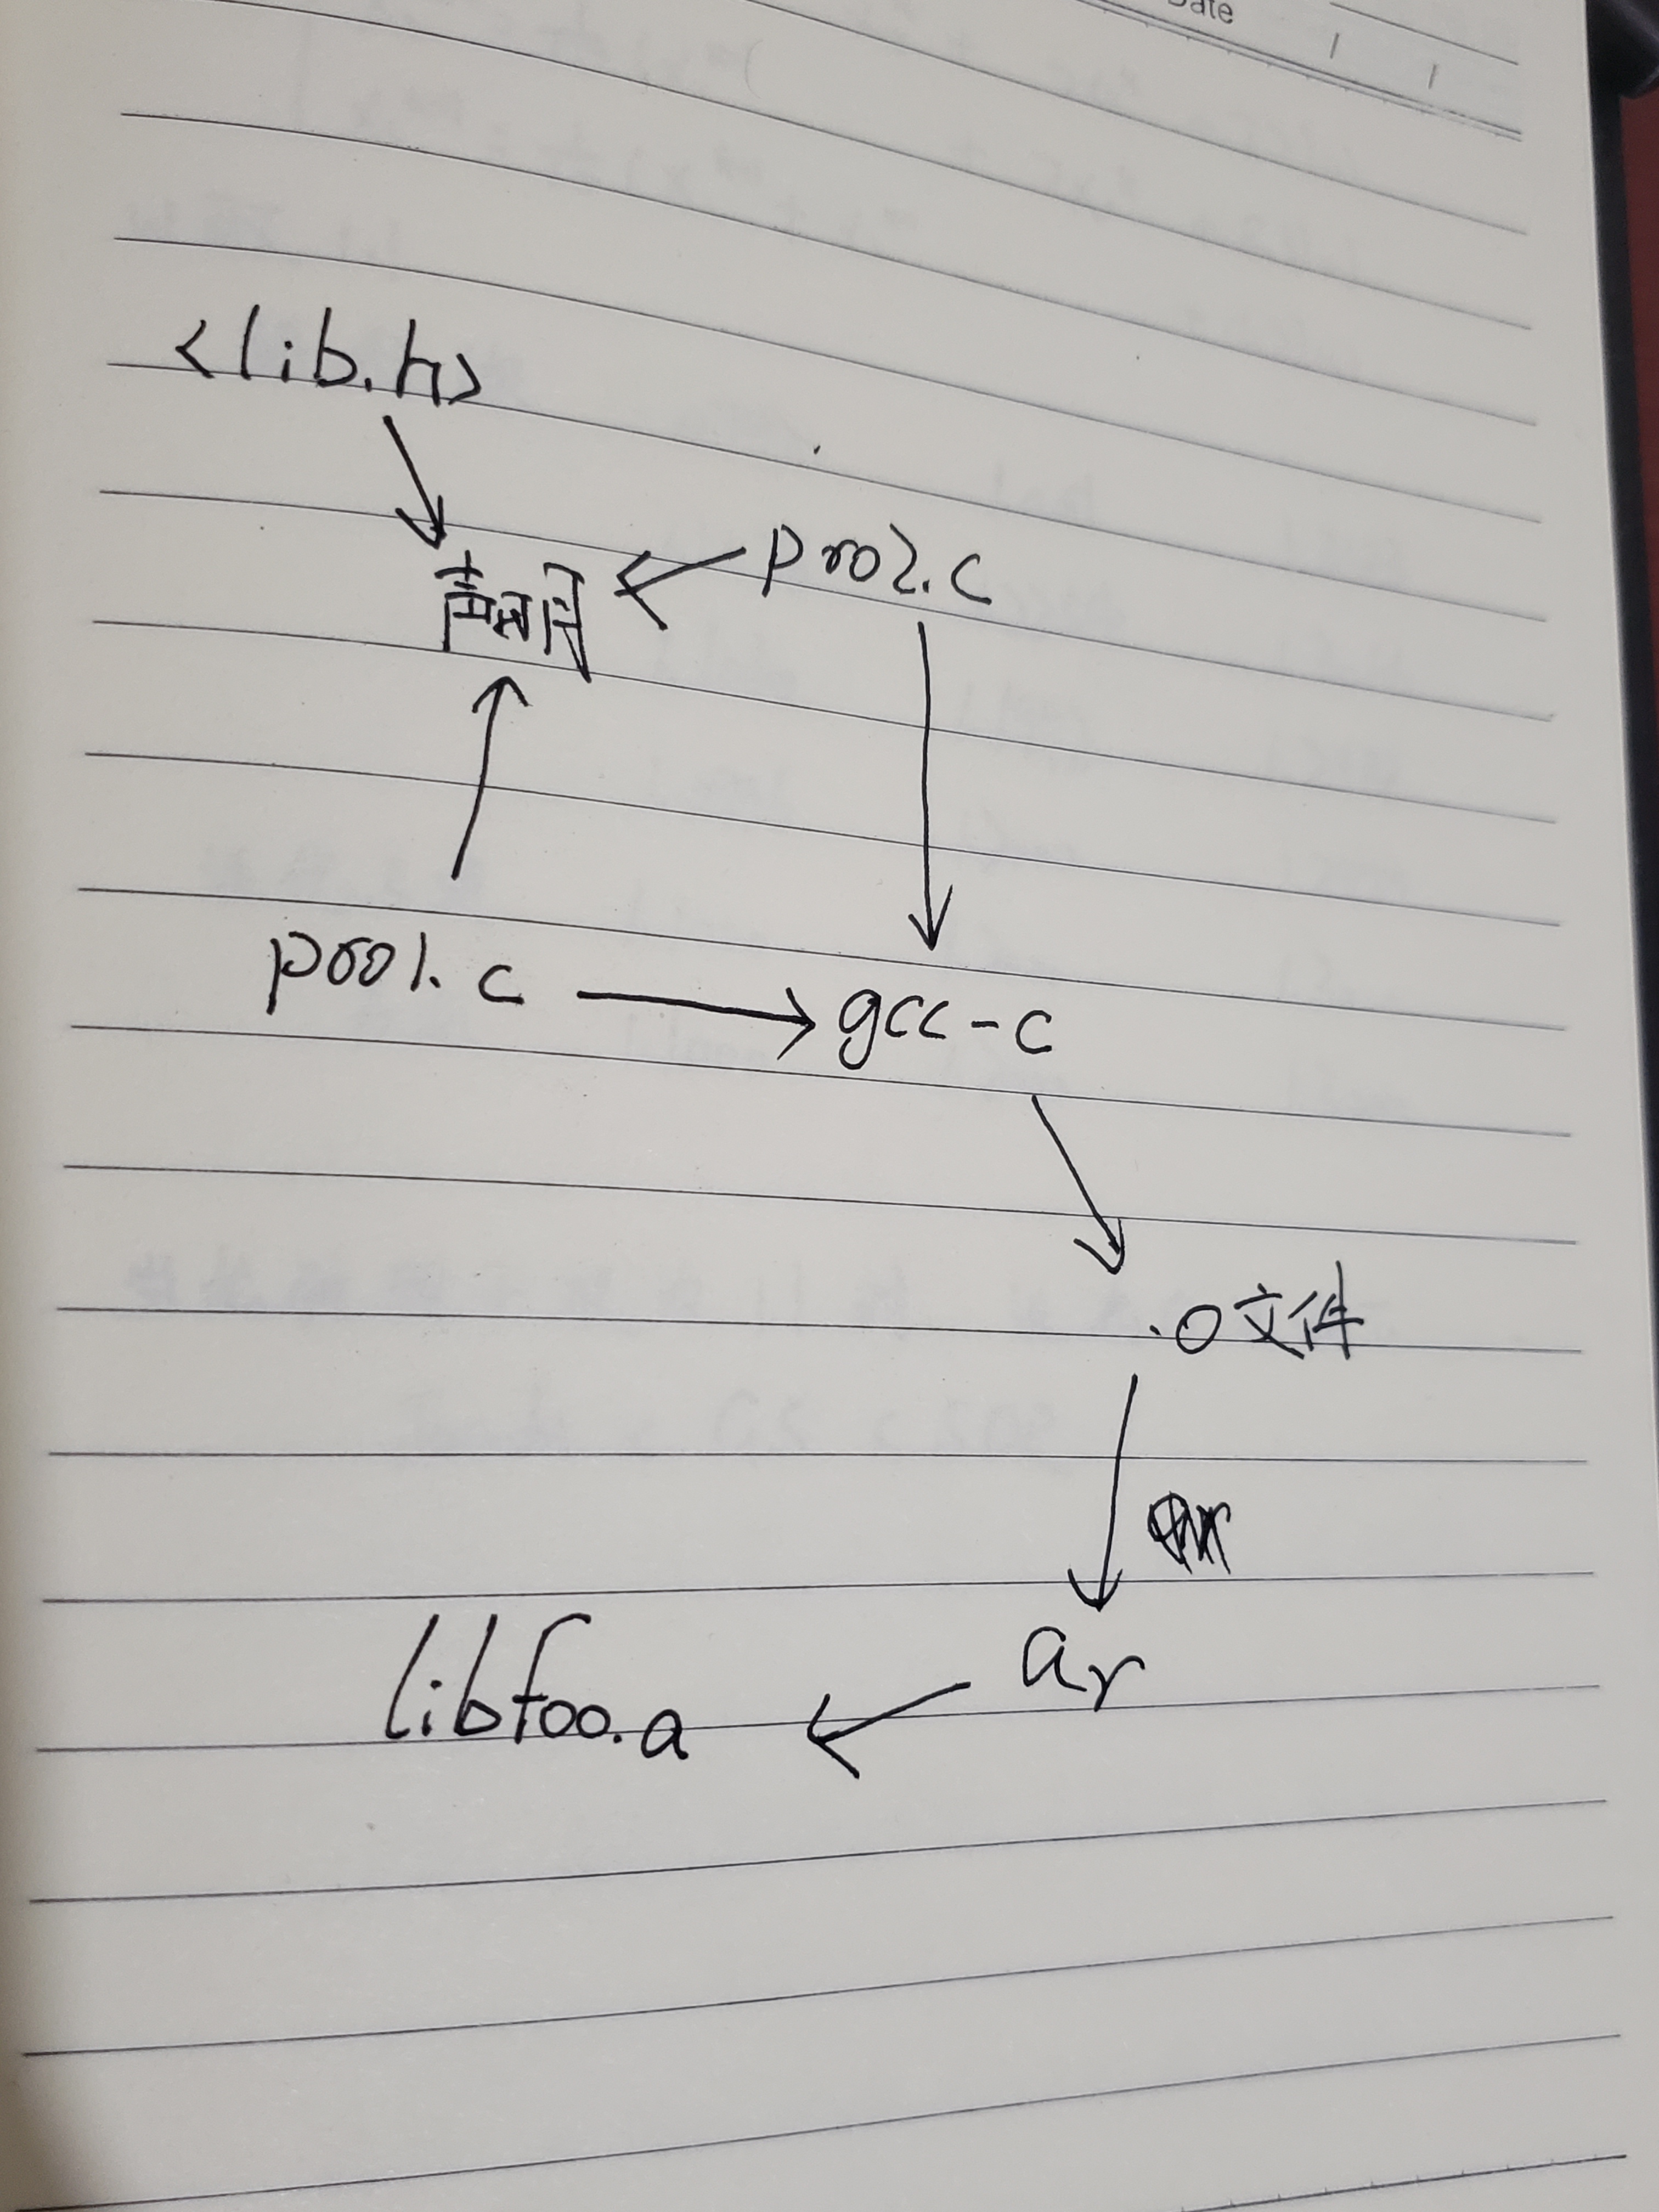 Date
<lib.h>
pro2.c
声明
pro1.c
gcc-c
.o文件
ar
libfoo.a